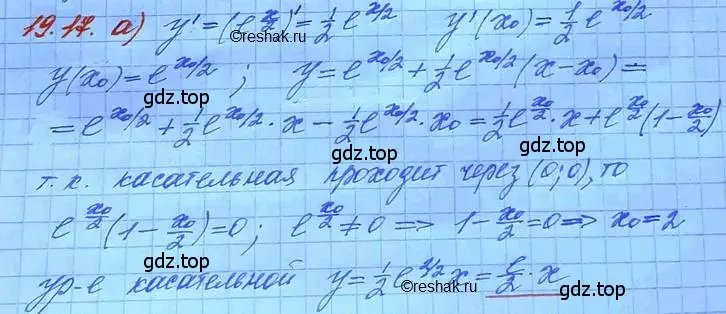 19.17. а) y' = (e^{x/2})' = 1/2 e^{x/2}   y'(x₀) = 1/2 e^{x₀/2}
©reshak.ru
y(x₀) = e^{x₀/2} ; y = e^{x₀/2} + 1/2 e^{x₀/2} (x - x₀) =
gdz.top gdz.top
= e^{x₀/2} + 1/2 e^{x₀/2} · x - 1/2 e^{x₀/2} · x₀ = 1/2 e^{x₀/2} · x + e^{x₀/2} (1 - x₀/2)
gdz.top gdz.top
т.к. касательная проходит через (0;0), то
e^{x₀/2} (1 - x₀/2) = 0 ; e^{x₀/2} ≠ 0 => 1 - x₀/2 = 0 => x₀ = 2
gdz.top gdz.top
ур-е касательной y = 1/2 e^{2/2} x = e/2 · x
©reshak.ru
gdz.top gdz.top